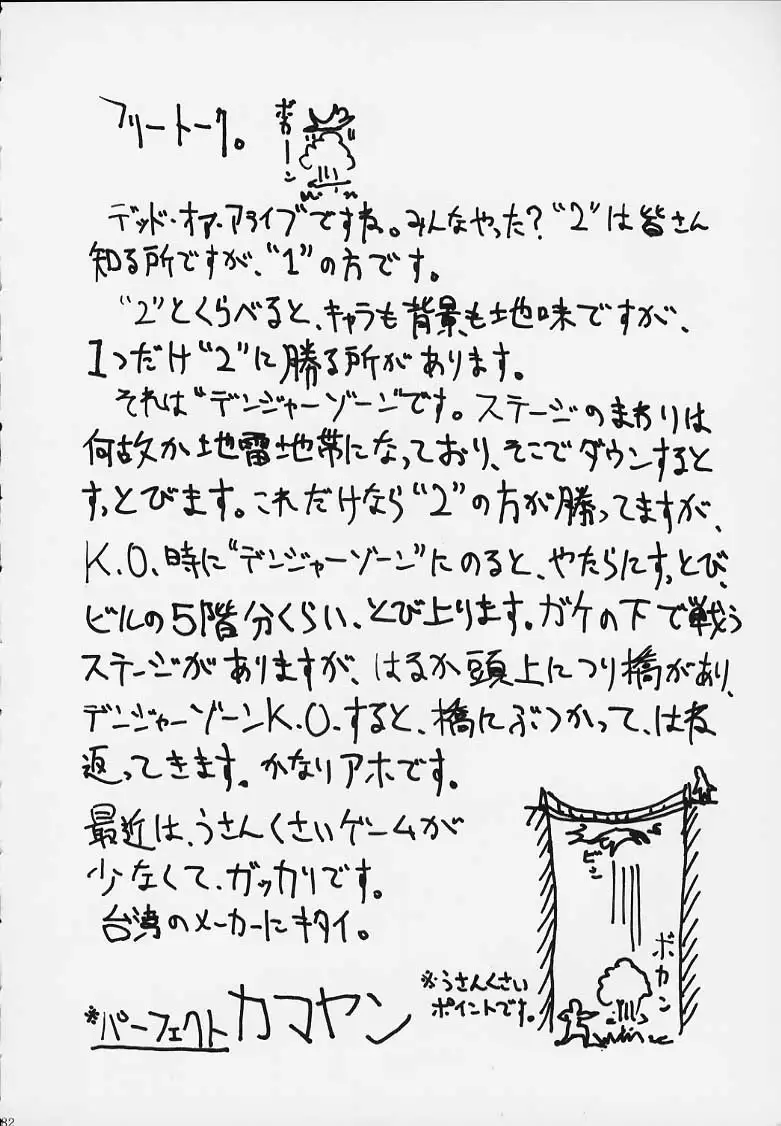 フリートーク。
ボカーン
デッド・オア・アライブですね。みんなやった?"2"は皆さん
知る所ですが、"1"の方です。
"2"とくらべると、キャラも背景も地味ですが、
1つだけ"2"に勝る所があります。
それは"デンジャーゾーン"です。ステージのまわりは
何故か地雷地帯になっており、そこでダウンすると
すっとびます。これだけなら"2"の方が勝ってますが、
K.O.時に"デンジャーゾーン"にのると、やたらにすっとび、
ビルの5階分くらい、とび上ります。ガケの下で戦う
ステージがありますが、はるか頭上につり橋があり、
デンジャーゾーンK.O.すると、橋にぶつかって、はね
返ってきます。かなりアホです。
最近は、うさんくさいゲームが
少なくて、ガッカリです。
台湾のメーカーにキタイ。
※パーフェクトカマヤン
※うさんくさい
ポイントです。
ビシ
ボカン
82